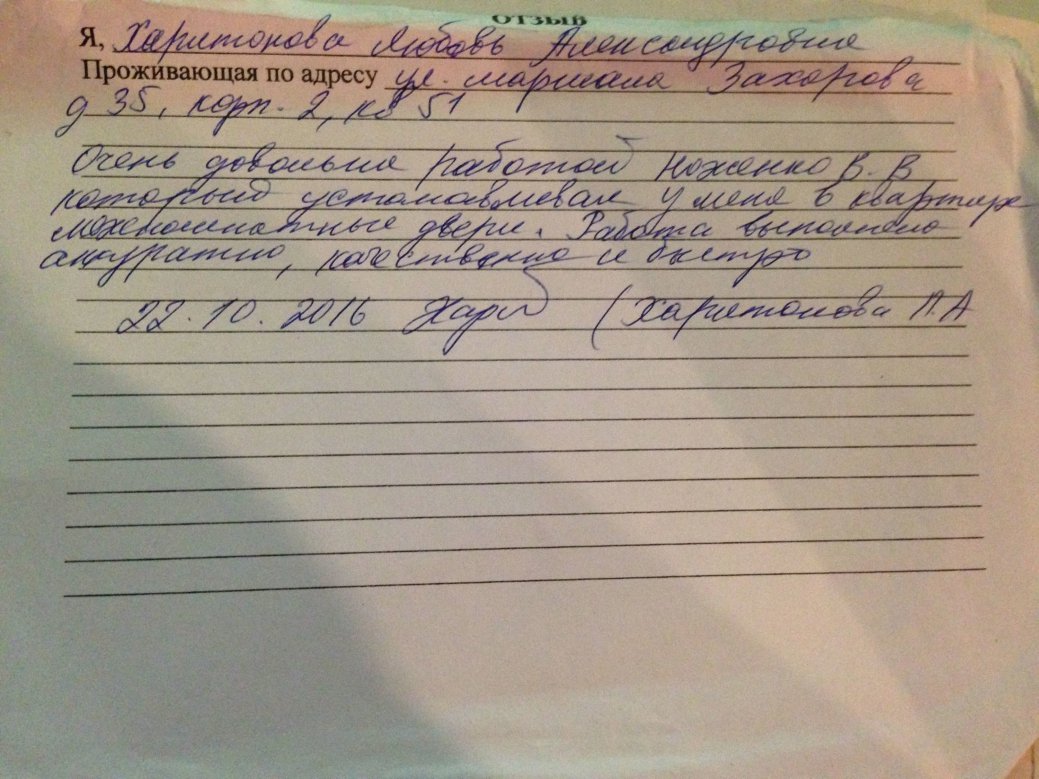 ОТЗЫВ
Я, Харитонова Любовь Александровна
Проживающая по адресу ул. маршала Захарова
д 35, корп. 2, кв 51
Очень довольна работой Ноженко В. В
который устанавливал у меня в квартире
межкомнатные двери. Работа выполнена
аккуратно, качественно и быстро
22.10.2016 Хари (Харитонова Л.А